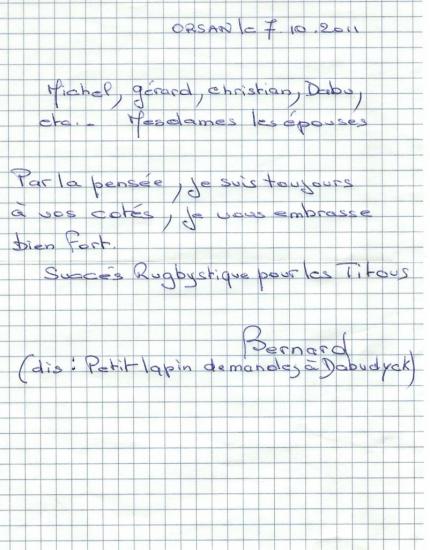 ORSAN le 7.10.2011
Michel, gérard, christian, Dabu,
etc... Mesdames les épouses
Par la pensée, je suis toujours
à vos cotés, je vous embrasse
bien fort.
Succés Rugbystique pour les Titous
Bernard
(dis: Petit lapin demandes à Dabudyck)